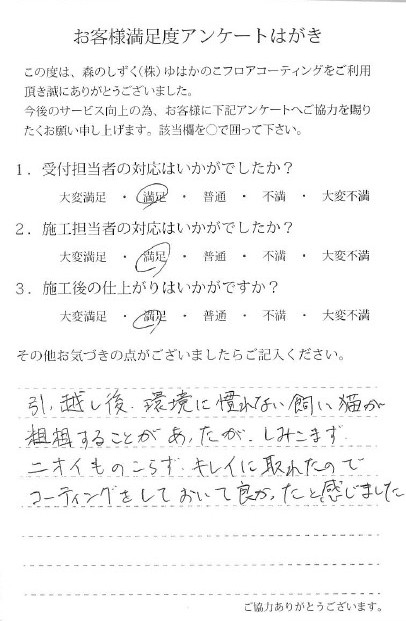 お客様満足度アンケートはがき
この度は、森のしずく(株)ゆはかのこフロアコーティングをご利用
頂き誠にありがとうございました。
今後のサービス向上の為、お客様に下記アンケートへご協力を賜り
たくお願い申し上げます。該当欄を○で囲って下さい。
1．受付担当者の対応はいかがでしたか？
大変満足 ・ 満足 ・ 普通 ・ 不満 ・ 大変不満
2．施工担当者の対応はいかがでしたか？
大変満足 ・ 満足 ・ 普通 ・ 不満 ・ 大変不満
3．施工後の仕上がりはいかがですか？
大変満足 ・ 満足 ・ 普通 ・ 不満 ・ 大変不満
その他お気づきの点がございましたらご記入ください。
引っ越し後、環境に慣れない飼い猫が
粗相することがあったが、しみこまず
ニオイものこらず、キレイに取れたので
コーティングをしておいて良かったと感じました
ご協力ありがとうございます。